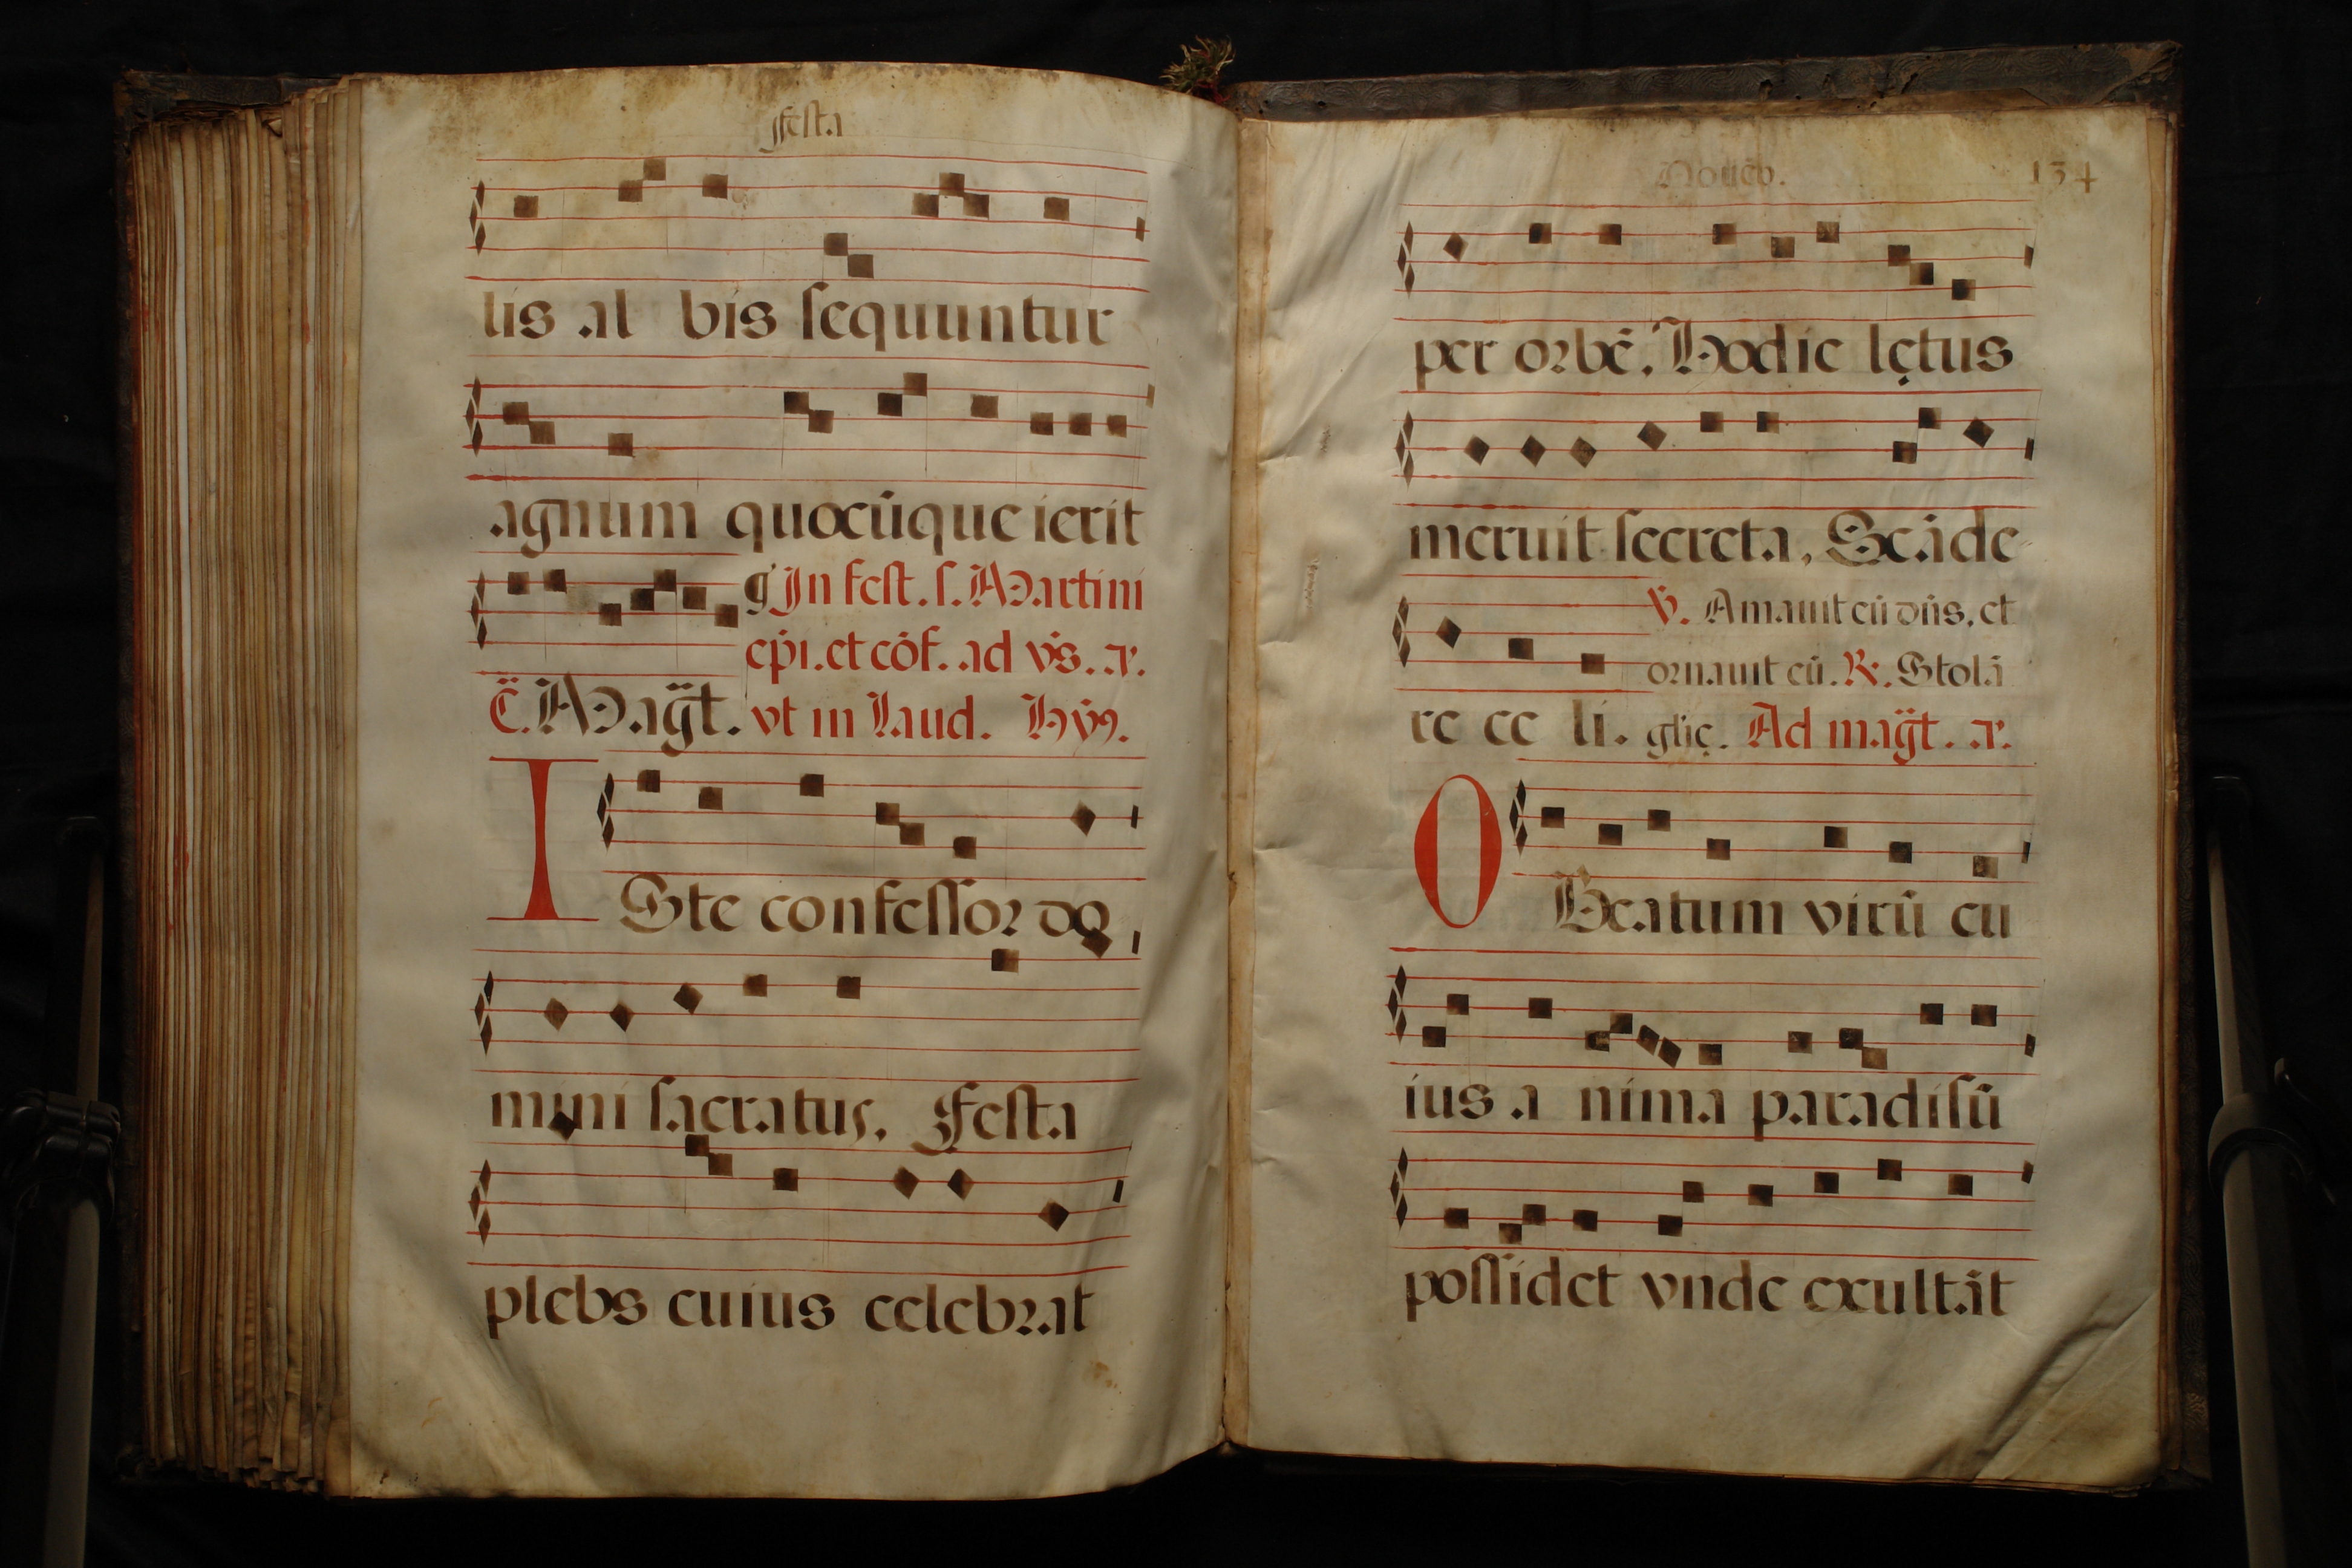 Festa
lis al bis sequuntur
agnum quocūque ierit
g̃ In fest. s. Martini
ep̃i. et cōf. ad v̄s. a.
C̃. Mag̃t. vt in Laud. Hỹ9.
ISte confessor do
mini sacratus, Festa
plebs cuius celebrat
Nouēb. 134
per orbē, Hodie lętus
meruit secreta, Scāde
℣. Amauit eū dn̄s, et
ornauit eū. ℟. Stolā
re ce li. gl̃ię. Ad mag̃t. a.
O Beatum virū cu
ius a nima paradisū
possidet vnde exultāt